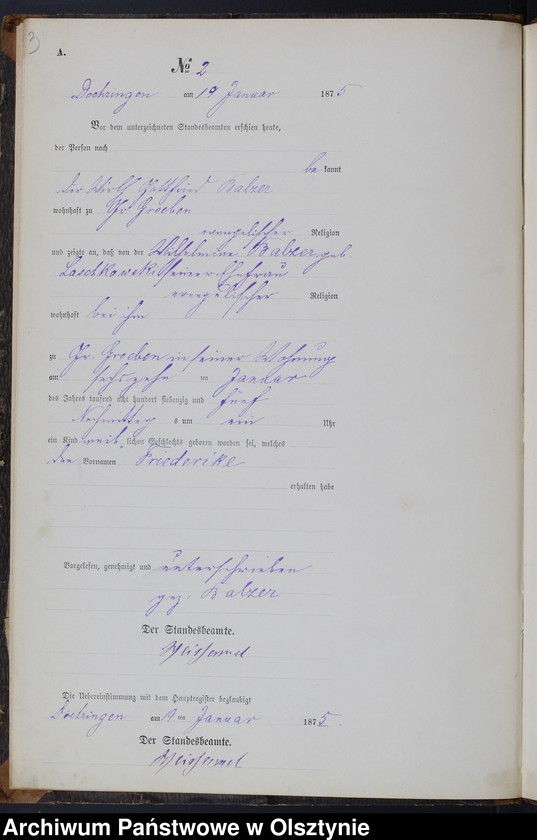 3
A.
№ 2
Doehringen am 19 Januar 1875
Vor dem unterzeichneten Standesbeamten erschien heute,
der Person nach
bekannt
der Wirth Gottfried Balzer
wohnhaft zu Gr Groeben
evangelischer Religion
und zeigte an, daß von der Wilhelmine Balzer geb.
Laschkowski seiner Ehefrau
evangelischer Religion
wohnhaft bei ihm
zu Gr. Groeben in seiner Wohnung
am sechszehn ten Januar
des Jahres tausend acht hundert siebenzig und fünf
Nachmittag s um ein Uhr
ein Kind weiblichen Geschlechts geboren worden sei, welches
den Vornamen Friederike
erhalten habe
Vorgelesen, genehmigt und unterschrieben
gez. Balzer
Der Standesbeamte.
Weissermel
Die Uebereinstimmung mit dem Hauptregister beglaubigt
Doehringen am 19 ten Januar 1875.
Der Standesbeamte.
Weissermel
Archiwum Państwowe w Olsztynie